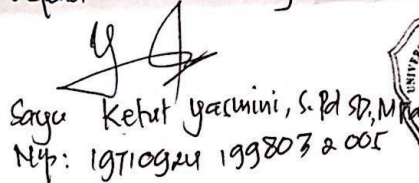 Sayu Ketut Yasmini, S.Pd SD, M.Pd
Nip: 19710924 199803 2 005
UNIVERS